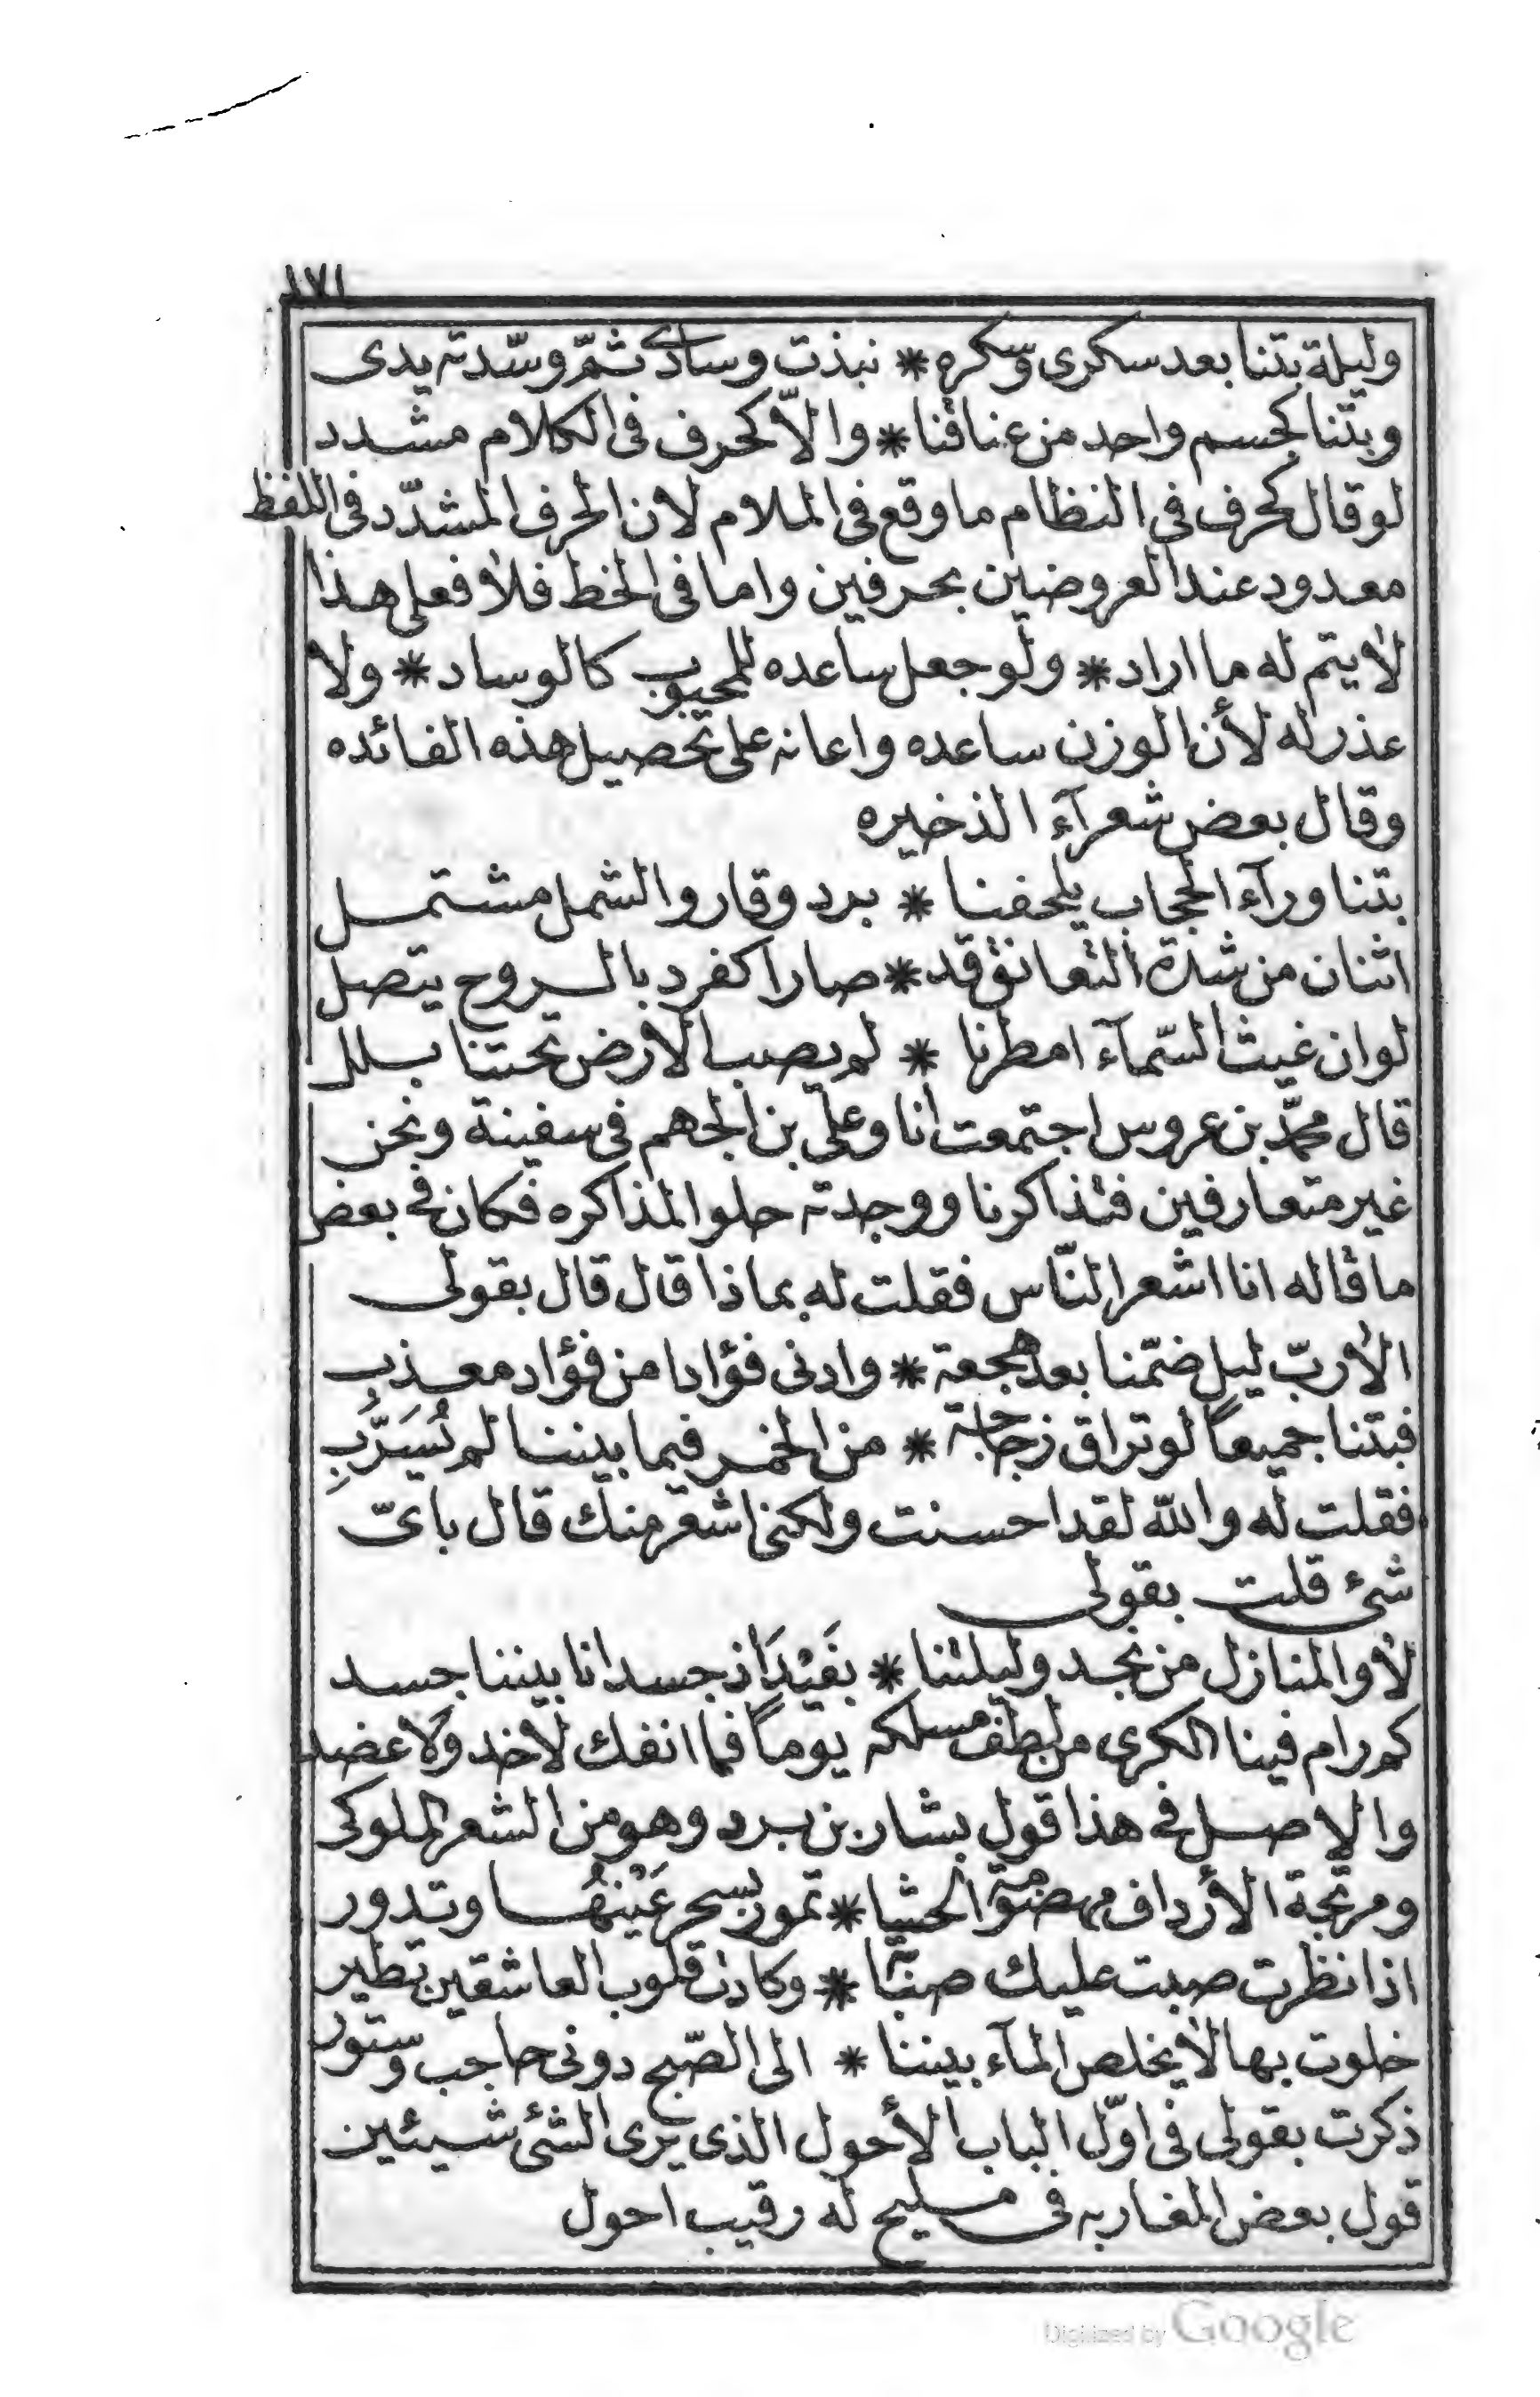 ١٧١
وليلة بتنا بعد سكرى وسكره * نبذت وسادى ثمّ وسّدته يدى
وبتنا كجسم واحد من عناقنا * والاّ كحرف فى الكلام مشدد
لو قال كحرف فى النظام ما وقع فى الملام لان الحرف المشدّد فى اللفظ
معدود عند العروضيين بحرفين واما فى الخط فلا فعلى هذا
لا يتم له ما اراد * ولو جعل ساعده للمحبوب كالوساد * ولا
عذر له لأن الوزن ساعده واعانه على تحصيل هذه الفائده
وقال بعض شعرآء الذخيره
بتنا ورآء الحجاب يلحفنا * برد وقار والشمل مشتمل
اثنان من شدة التعانق قد * صارا كفرد بالروح يتصل
لو ان غيث السّمآء امطرنا * لم يصب الارض تحتنا بلل
قال محمّد بن عروس اجتمعت انا وعلى بن الجهم فى سفينة ونحن
غير متعارفين فتذاكرنا ووجدته حلو المذاكره فكان فى بعض
ما قاله انا اشعر النّاس فقلت له بماذا قال قال بقولى
الا ربّ ليل ضمّنا بعد هجعة * وادنى فؤادا من فؤاد معذب
فبتنا جميعاً لو تراق زجاجة * من الخمر فيما بيننا لم تُسَرَّبِ
فقلت له والله لقد احسنت ولكنى اشعر منك قال باىّ
شئ قلت بقولى
لا والمنازل من نجد وليلتنا * بفَيْدَ اذ جسدانا بيننا جسد
كم رام فينا الكرى من لطف مسلكه يوماً فما انفك لا خد ولا عضد
والاصل فى هذا قول بشار بن برد وهو من الشعر الملوكى
ومرتجة الأرداف مهضومة الحشا * تمور بسحر عَيْنُهُا وتدور
اذا نظرت صبت عليك صبابة * وكادت قلوب العاشقين تطير
خلوت بها لا يخلص المآء بيننا * الى الصّبح دونى حاجب وستور
ذكرت بقولى فى اوّل الباب الأحول الذى يرى الشئ شيئين
قول بعض المغاربه فى مليح له رقيب احول
Digitized by Google